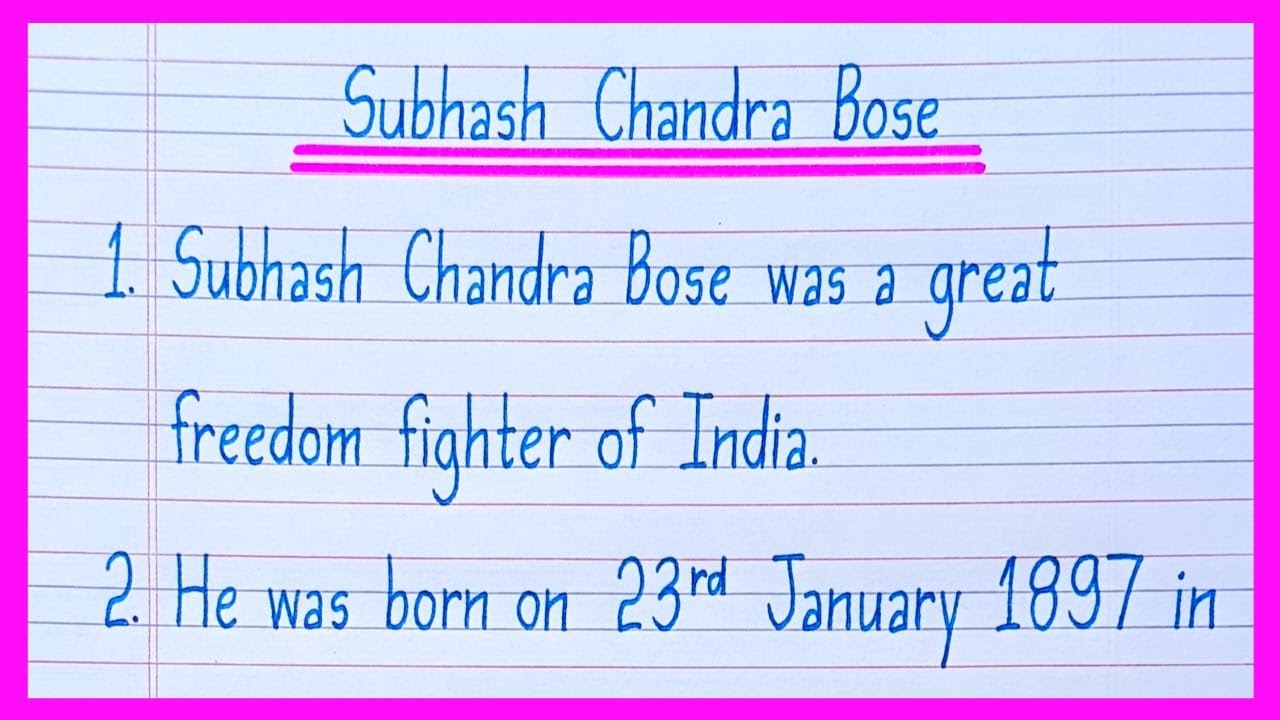 Subhash Chandra Bose
1. Subhash Chandra Bose was a great
freedom fighter of India.
2. He was born on 23rd January 1897 in